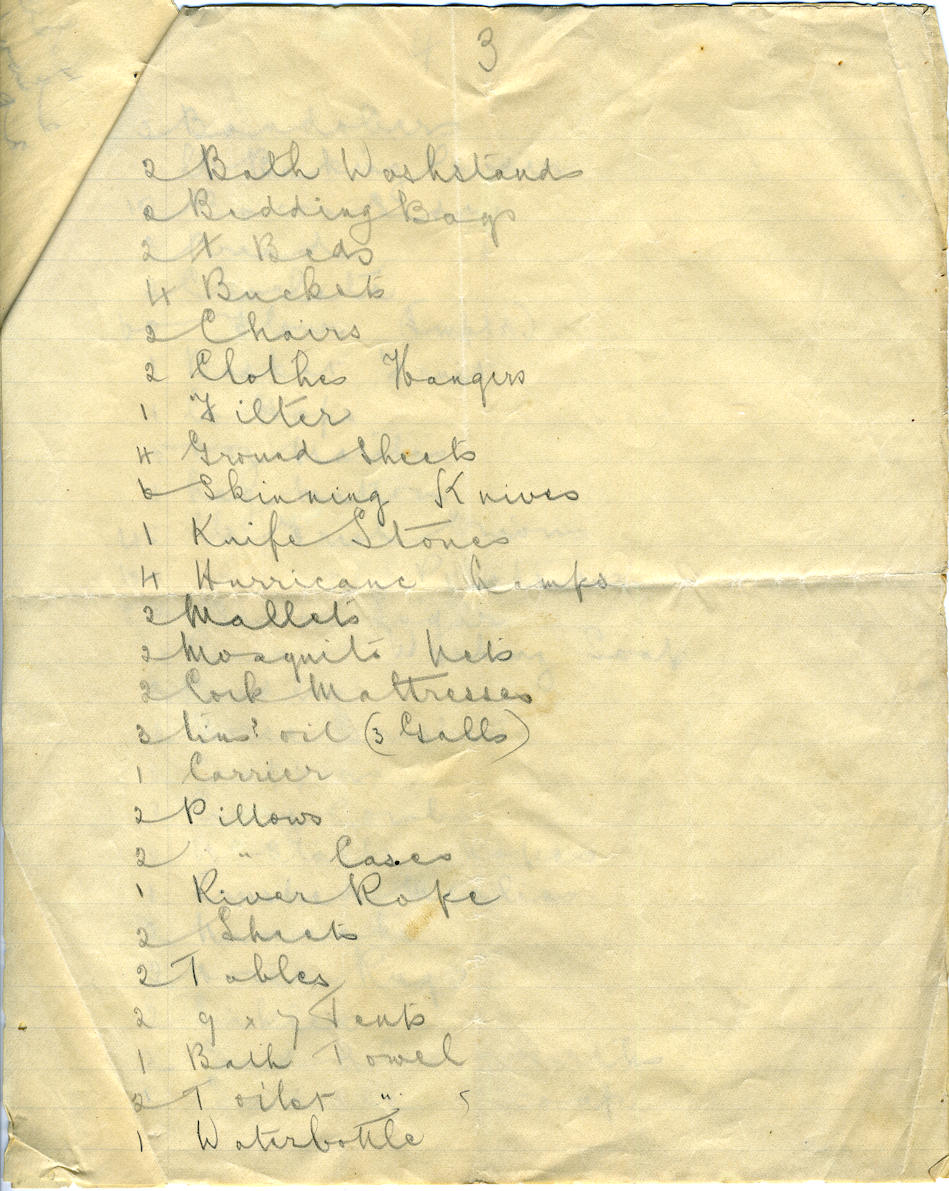 3
2 Bath Washstands
2 Bedding Bags
2 X Beds
4 Buckets
2 Chairs
2 Clothes Hangers
1 Filter
4 Ground Sheets
6 Skinning Knives
1 Knife Stones
4 Hurricane Lamps
2 Mallets
2 Mosquito Nets
2 Cork Mattresses
3 oil (3 Galls)
1 Carrier
2 Pillows
2 " Cases
1 River Rope
2 Sheets
2 Tables
2 9 x 7 Tents
1 Bath Towel
2 Toilet " s
1 Waterbottle